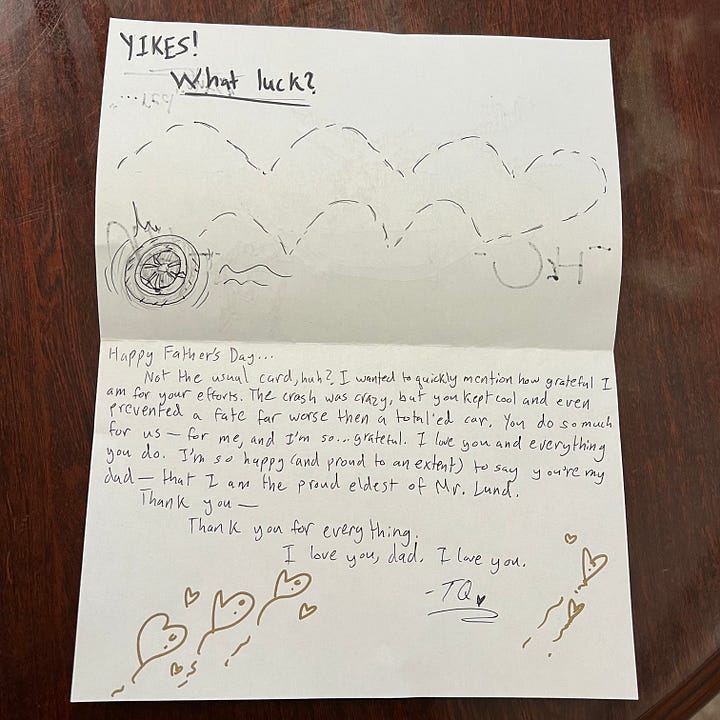 YIKES!
What luck?
Happy Father's Day...
Not the usual card, huh? I wanted to quickly mention how grateful I
am for your efforts. The crash was crazy, but you kept cool and even
prevented a fate far worse then a total'ed car. You do so much
for us — for me, and I'm so... grateful. I love you and everything
you do. I'm so happy (and proud to an extent) to say you're my
dad — that I am the proud eldest of Mr. Lund.
Thank you —
Thank you for everything.
I love you, dad. I love you.
- TQ